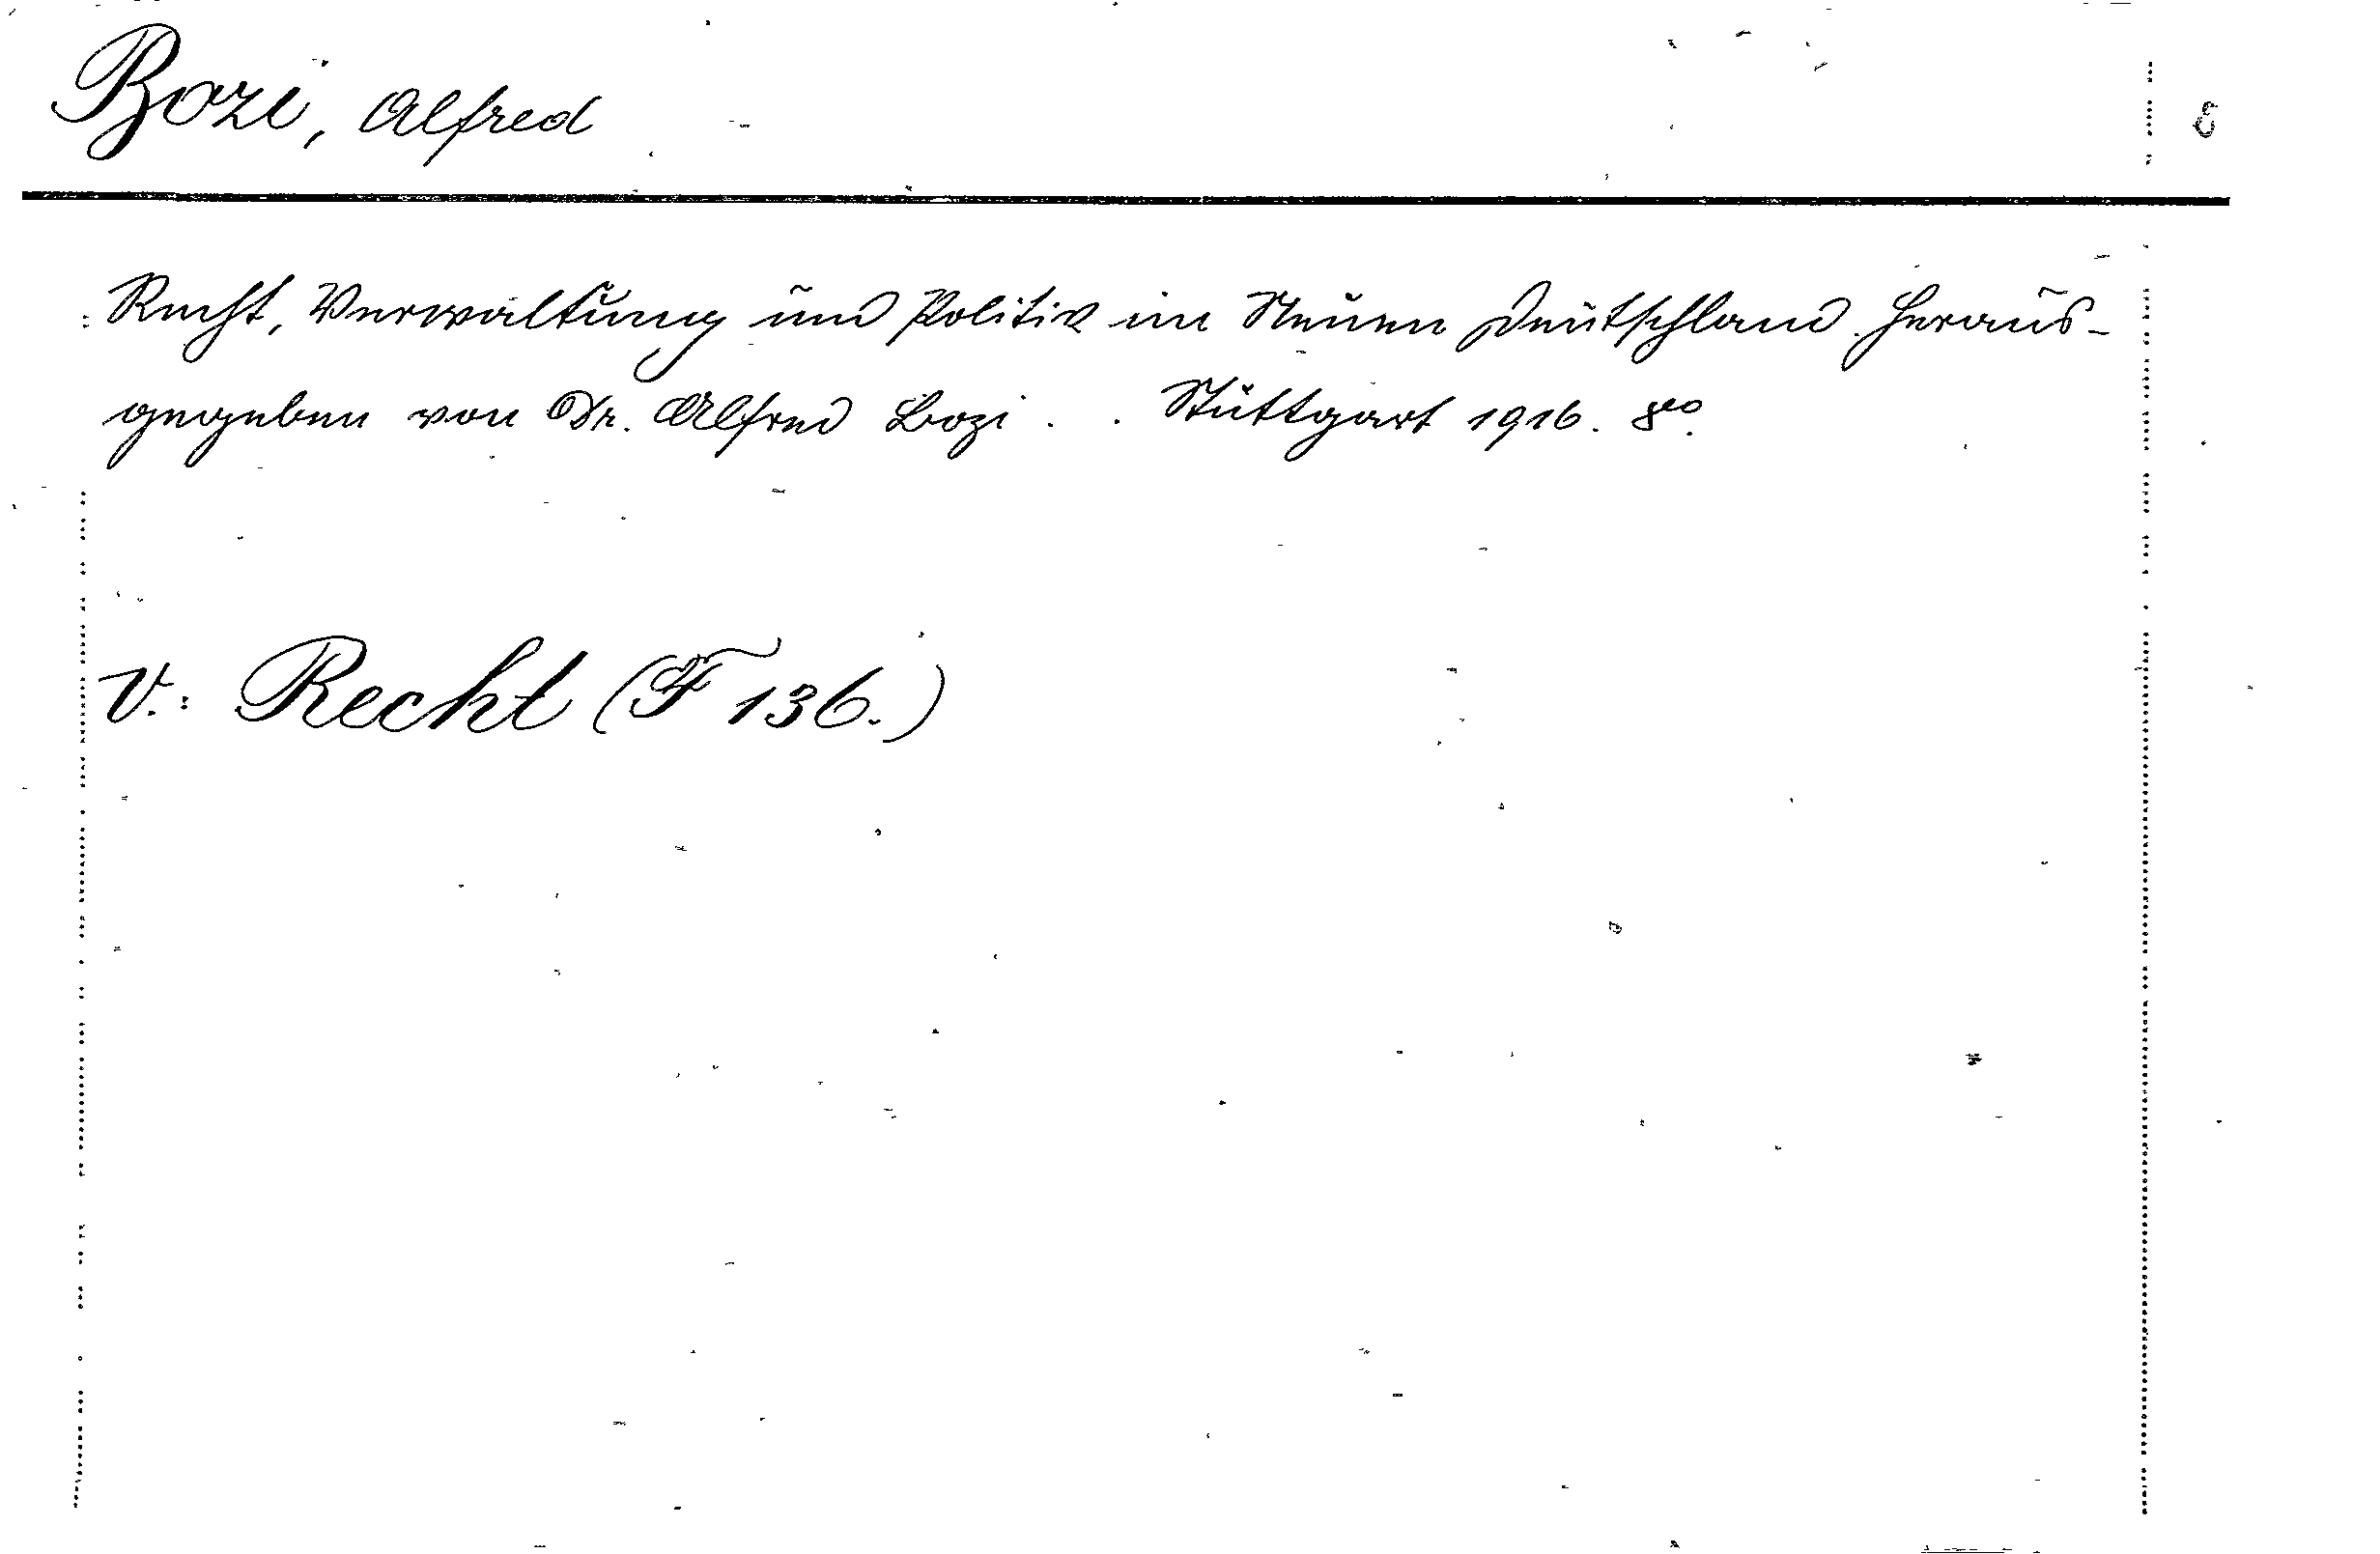 Bozi, Alfred
Recht, Verwaltung und Politik im Neuen Deutschland. Heraus-
gegeben von Dr. Alfred Bozi . . Stuttgart 1916. 8vo.
V.: Recht (F 136.)